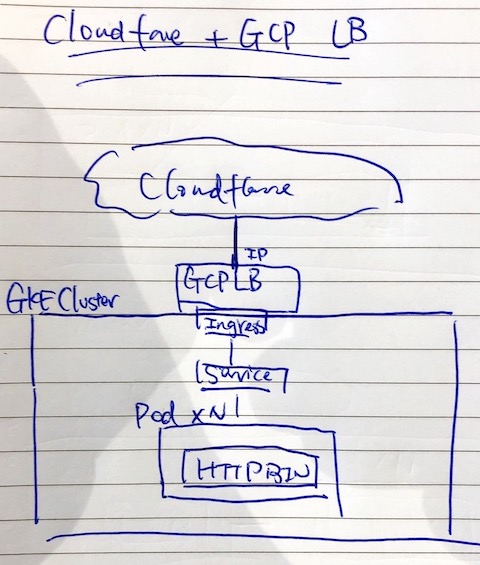 Cloudflare + GCP LB
Cloudflare
IP
GCP LB
GKE Cluster
Ingress
Service
Pod x N
HTTPBIN